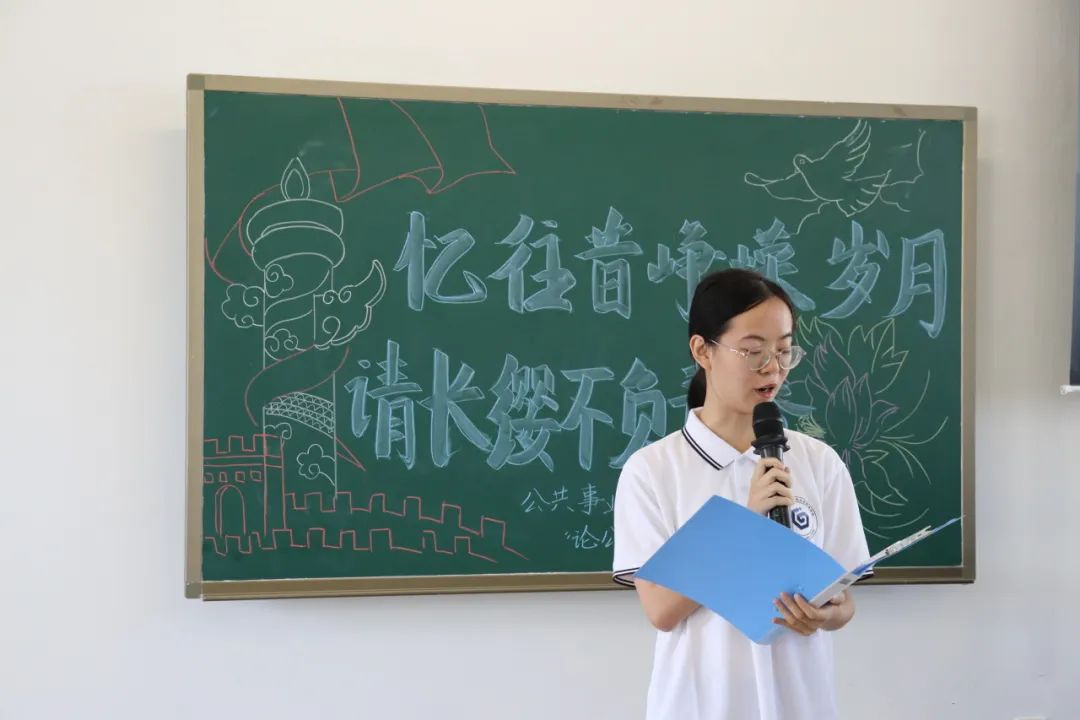 忆往昔峥嵘岁月
请长缨不负
公共事
“论公